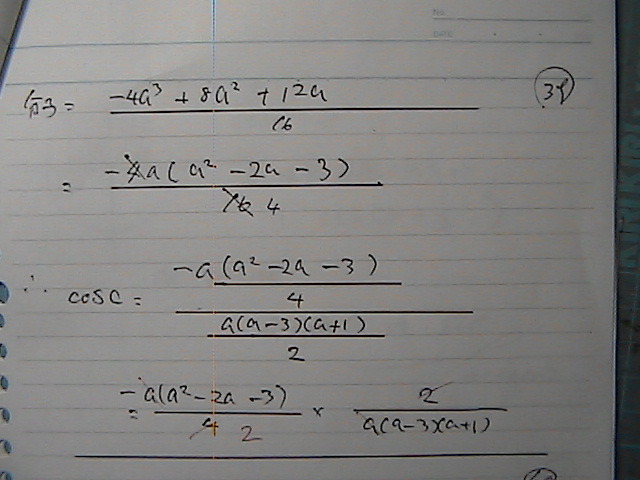 No.
DATE
分子 = (-4a³ + 8a² + 12a) / 16
= -4a(a² - 2a - 3) / 16 4
∴ cosC = (-a(a² - 2a - 3) / 4) / (a(a-3)(a+1) / 2)
= -a(a² - 2a - 3) / 4 2 × 2 / a(a-3)(a+1)